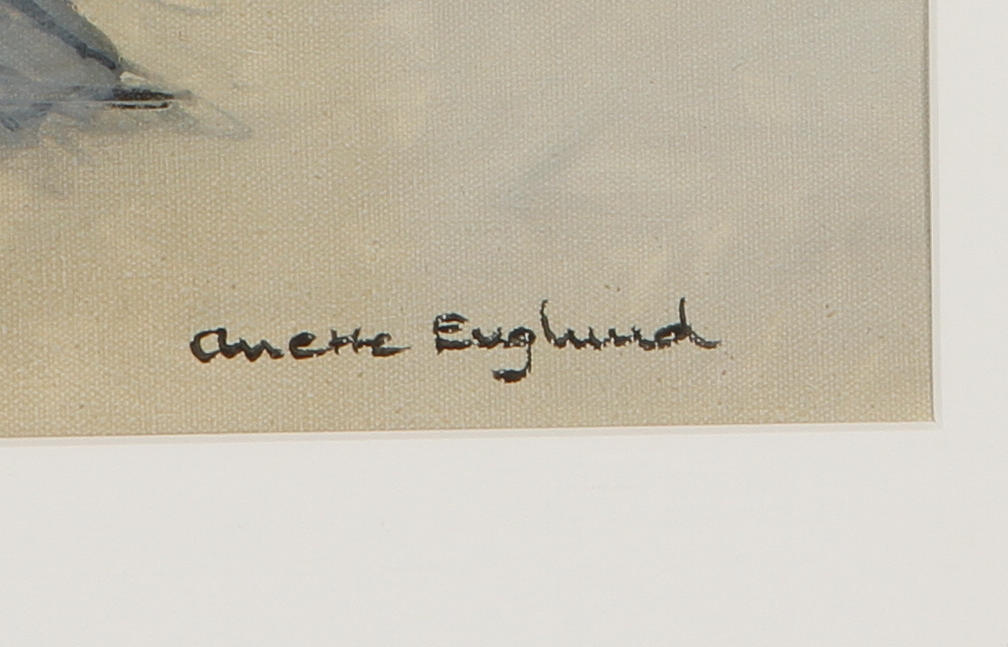 Anette Englund